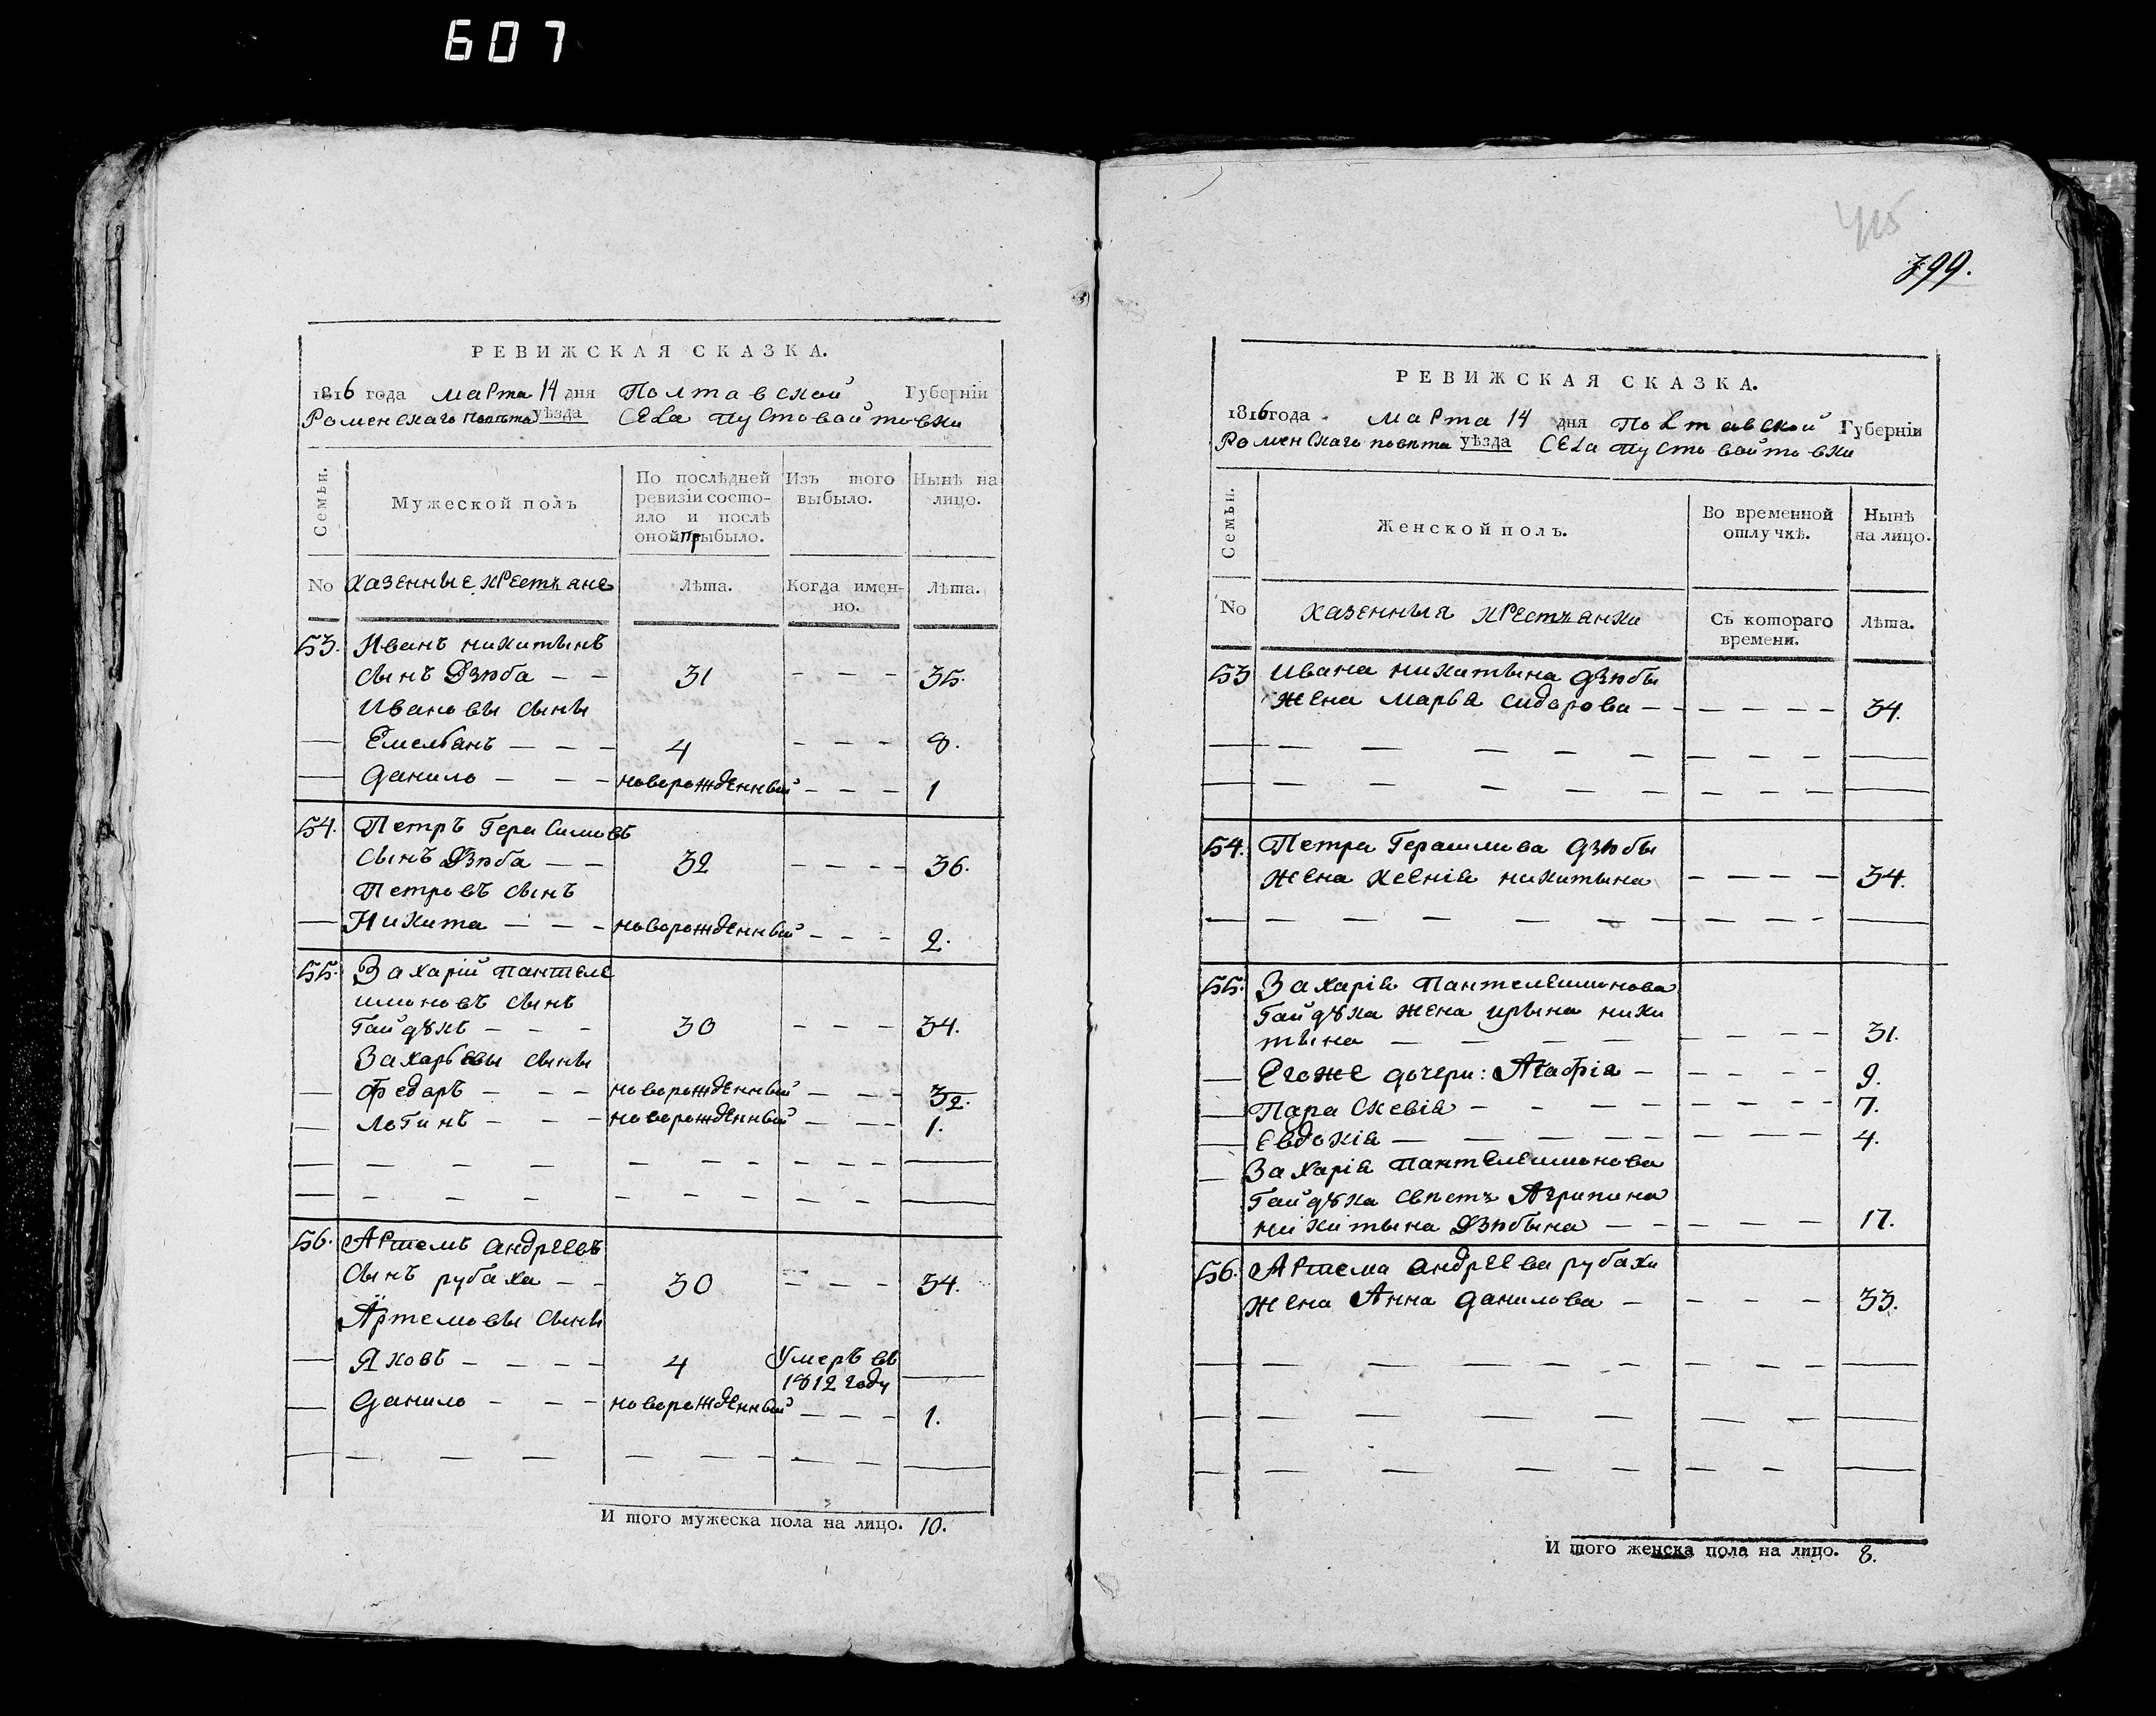 607
РЕВИЖСКАЯ СКАЗКА.
1816 года марта 14 дня Полтавской Губерніи
Роменскаго повѣта уѣзда села Пустовойтовки
Семьи.
Мужеской полъ
По послѣдней ревизіи состояло и послѣ оной прибыло.
Изъ того выбыло.
Нынѣ на лицо.
No казенные крестъяне Лѣта. Когда именно. Лѣта.
53. Иванъ никитынъ
сынъ Дзюба – – 31 – – – 35.
Ивановы сыны
— Емельянъ – – – 4 – – – 8.
— Данило – – – новорожденный – – – 1
54. Петръ Герасимовъ
сынъ Дзюба – – 32 – – – – 36.
Петровъ сынъ
— Никита – – – новорожденный – – – 2.
55. Захарій пантеле
имоновъ сынъ
Гайдукъ – – – 30 – – – 34.
Захарьевы сыны
— Федоръ – – – новорожденный – – –
— Логинъ – – – новорожденный – – – 1.
56. Артемъ андреевъ
сынъ рубаха – – 30 – – – 34.
Артемовы сыны
— Яковъ – – – – 4 Умеръ въ
1812 году
— Данило – – – новорожденный – – – 1.
И того мужеска пола на лицо. 10.
415
399.
РЕВИЖСКАЯ СКАЗКА.
1816 года марта 14 дня Полтавской Губерніи
Роменскаго повѣта уѣзда села Пустовойтовки
Семьи.
Женской полъ.
Во временной отлучкѣ.
Нынѣ на лицо.
No казенныя крестъянки Съ котораго времени. Лѣта.
53 Ивана никитына дзюбы
жена марья сидорова – – – – – – 34.
54. Петра Герасимова дзюбы
жена ксенія никитына – – – – 34.
55. Захарія Пантелеимонова
Гайдука жена ирына ники
тына – – – – – – – – 31.
— Егоже дочери: Агафія – – – – – 9.
— Параскевія – – – – – – – – 7.
— Евдокія – – – – – – – – – 4.
— Захарія Пантелеимонова
Гайдука свѣсть Агрипина
никитына Дзюбына – – – – – 17.
56. Артема андреева рубахи
жена Анна данилова – – – – 33.
И того женска пола на лицо. 8.